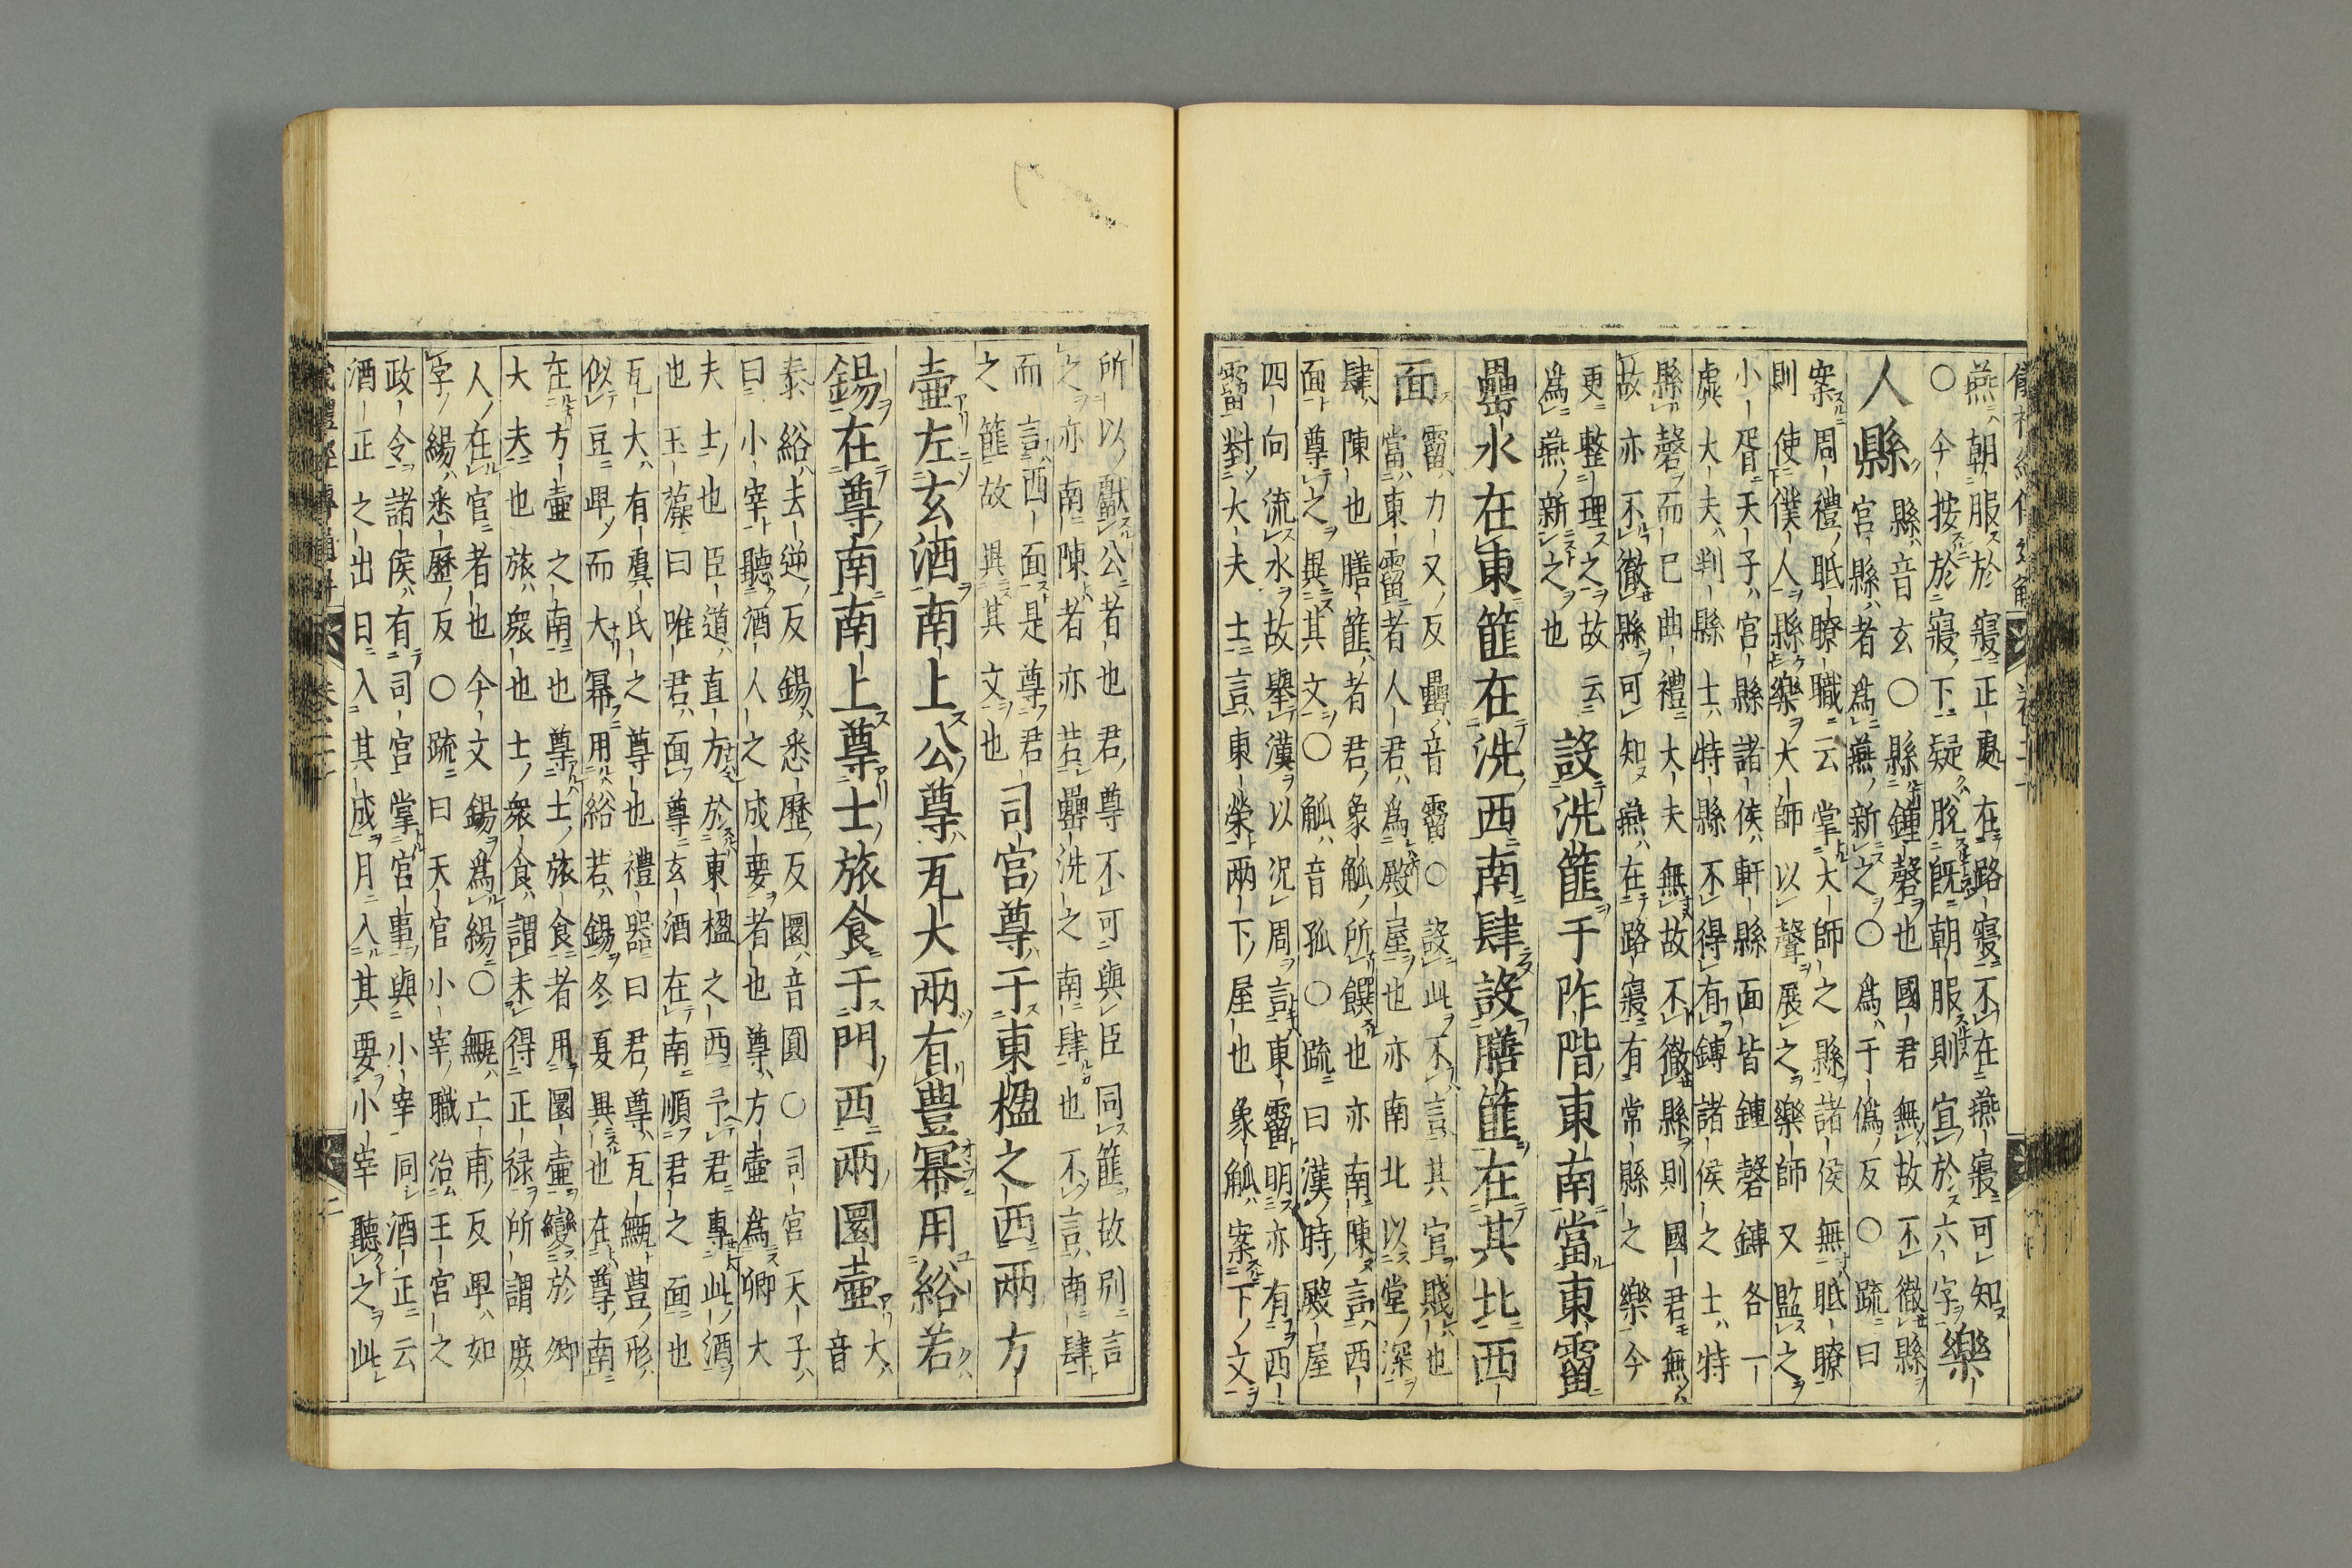 燕朝服於寢正處在路寢不在燕寢可知
○今按於寢下疑脫既朝服則宜於六字
樂
人縣
縣音玄○縣鍾磬也國君無故不徹縣
官縣者為燕新之○為于僞反○疏曰
案周禮眡瞭職云掌大師之縣諸侯無眡瞭
則使僕人縣樂大師以聲展之樂師又監之
小胥天子宮縣諸侯軒縣面皆鍾磬鎛各一
虡大夫判縣士特縣不得有鎛諸侯之士特
縣磬而已曲禮大夫無故不徹縣則國君無
故亦不徹縣可知燕在路寢有常縣之樂今
更整理之故云
為燕新之也
設洗篚于阼階東南當東霤
罍水在東篚在洗西南肆設膳篚在其北西
面
霤力又反罍音雷○設此不言其官賤也
當東霤者人君為殿屋也亦南北以堂深
肆陳也膳篚者君象觚所饌也亦南陳言西
面尊之異其文○觚音孤○疏曰漢時殿屋
四向流水故舉漢以況周言東霤明亦有西
霤對大夫士言東榮兩下屋也象觚案下文
所以獻公者也君尊不可與臣同篚故別言
之亦南陳者亦若罍洗之南肆也不言南肆
而言西面是尊君
之篚故異其文也
司宮尊于東楹之西兩方
壺左玄酒南上公尊瓦大兩有豐冪用綌若
錫在尊南南上尊士旅食于門西兩圜壺
大音
泰綌去逆反錫悉歷反圜音圓○司宮天子
曰小宰聽酒人之成要者也尊方壺為卿大
夫士也臣道直方於東楹之西予君專此酒
也玉藻曰唯君面尊玄酒在南順君之面也
瓦大有虞氏之尊也禮器曰君尊瓦甒豐形
似豆卑而大冪用綌若錫冬夏異也在尊南
在方壺之南也尊士旅食者用圜壺變於卿
大夫也旅衆也士衆食謂未得正祿所謂庶
人在官者也今文錫為緆○甒亡甫反卑如
字緆悉歷反○疏曰天官小宰職治王宮之
政令諸侯有司宮掌官事與小宰同酒正云
酒正之出日入其成月入其要小宰聽之此